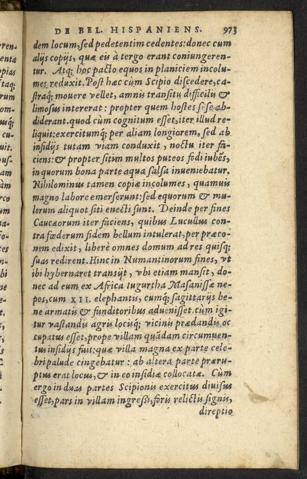 DE BEL. HISPANIENS. 973
dem locum, sed pedetentim cedentes: donec cum
alys copijs, quæ eis à tergo erant coniungeren-
tur. Atq; hoc pacto equos in planiciem incolu-
mes reduxit. Post hæc cùm Scipio discedere, ca-
straq; mouere vellet, amnis transitu difficilis &
limosus intererat: propter quem hostes sese ab-
diderant. quod cùm cognitum esset, iter illud re-
liquit: exercitumq; per aliam longiorem, sed ab
insidijs tutam viam conduxit, noctu iter fa-
ciens: & propter sitim multos puteos fodi iubēs,
in quorum bona parte aqua salsa inueniebatur.
Nihilominus tamen copiæ incolumes, quamuis
magno labore emerserunt: sed equorum & mu-
lorum aliquot siti enecti sunt. Deinde per fines
Caucæorum iter faciens, quibus Lucullus con-
tra fœderum fidem bellum intulerat, per præco-
nem edixit, liberè omnes domum ad res quisq;
suas redirent. Hinc in Numantinorum fines, vt
ibi hybernaret transijt, vbi etiam mansit, do-
nec ad eum ex Africa Iugurtha Masanissæ ne-
pos, cum XII. elephantis, cumq; sagittarijs be-
ne armatis & funditoribus aduenisset. cùm igi-
tur vastandis agris locisq; vicinis prædandis, oc
cupatus esset, prope villam quādam circumuen-
tus insidijs fuit: quæ villa magna ex parte cele-
bri palude cingebatur: ab altera parte præru-
ptus erat locus, & in eo insidiæ collocatæ. Cùm
ergo in duas partes Scipionis exercitus diuisus
esset, pars in villam ingressi, foris relictis signis,
direptio